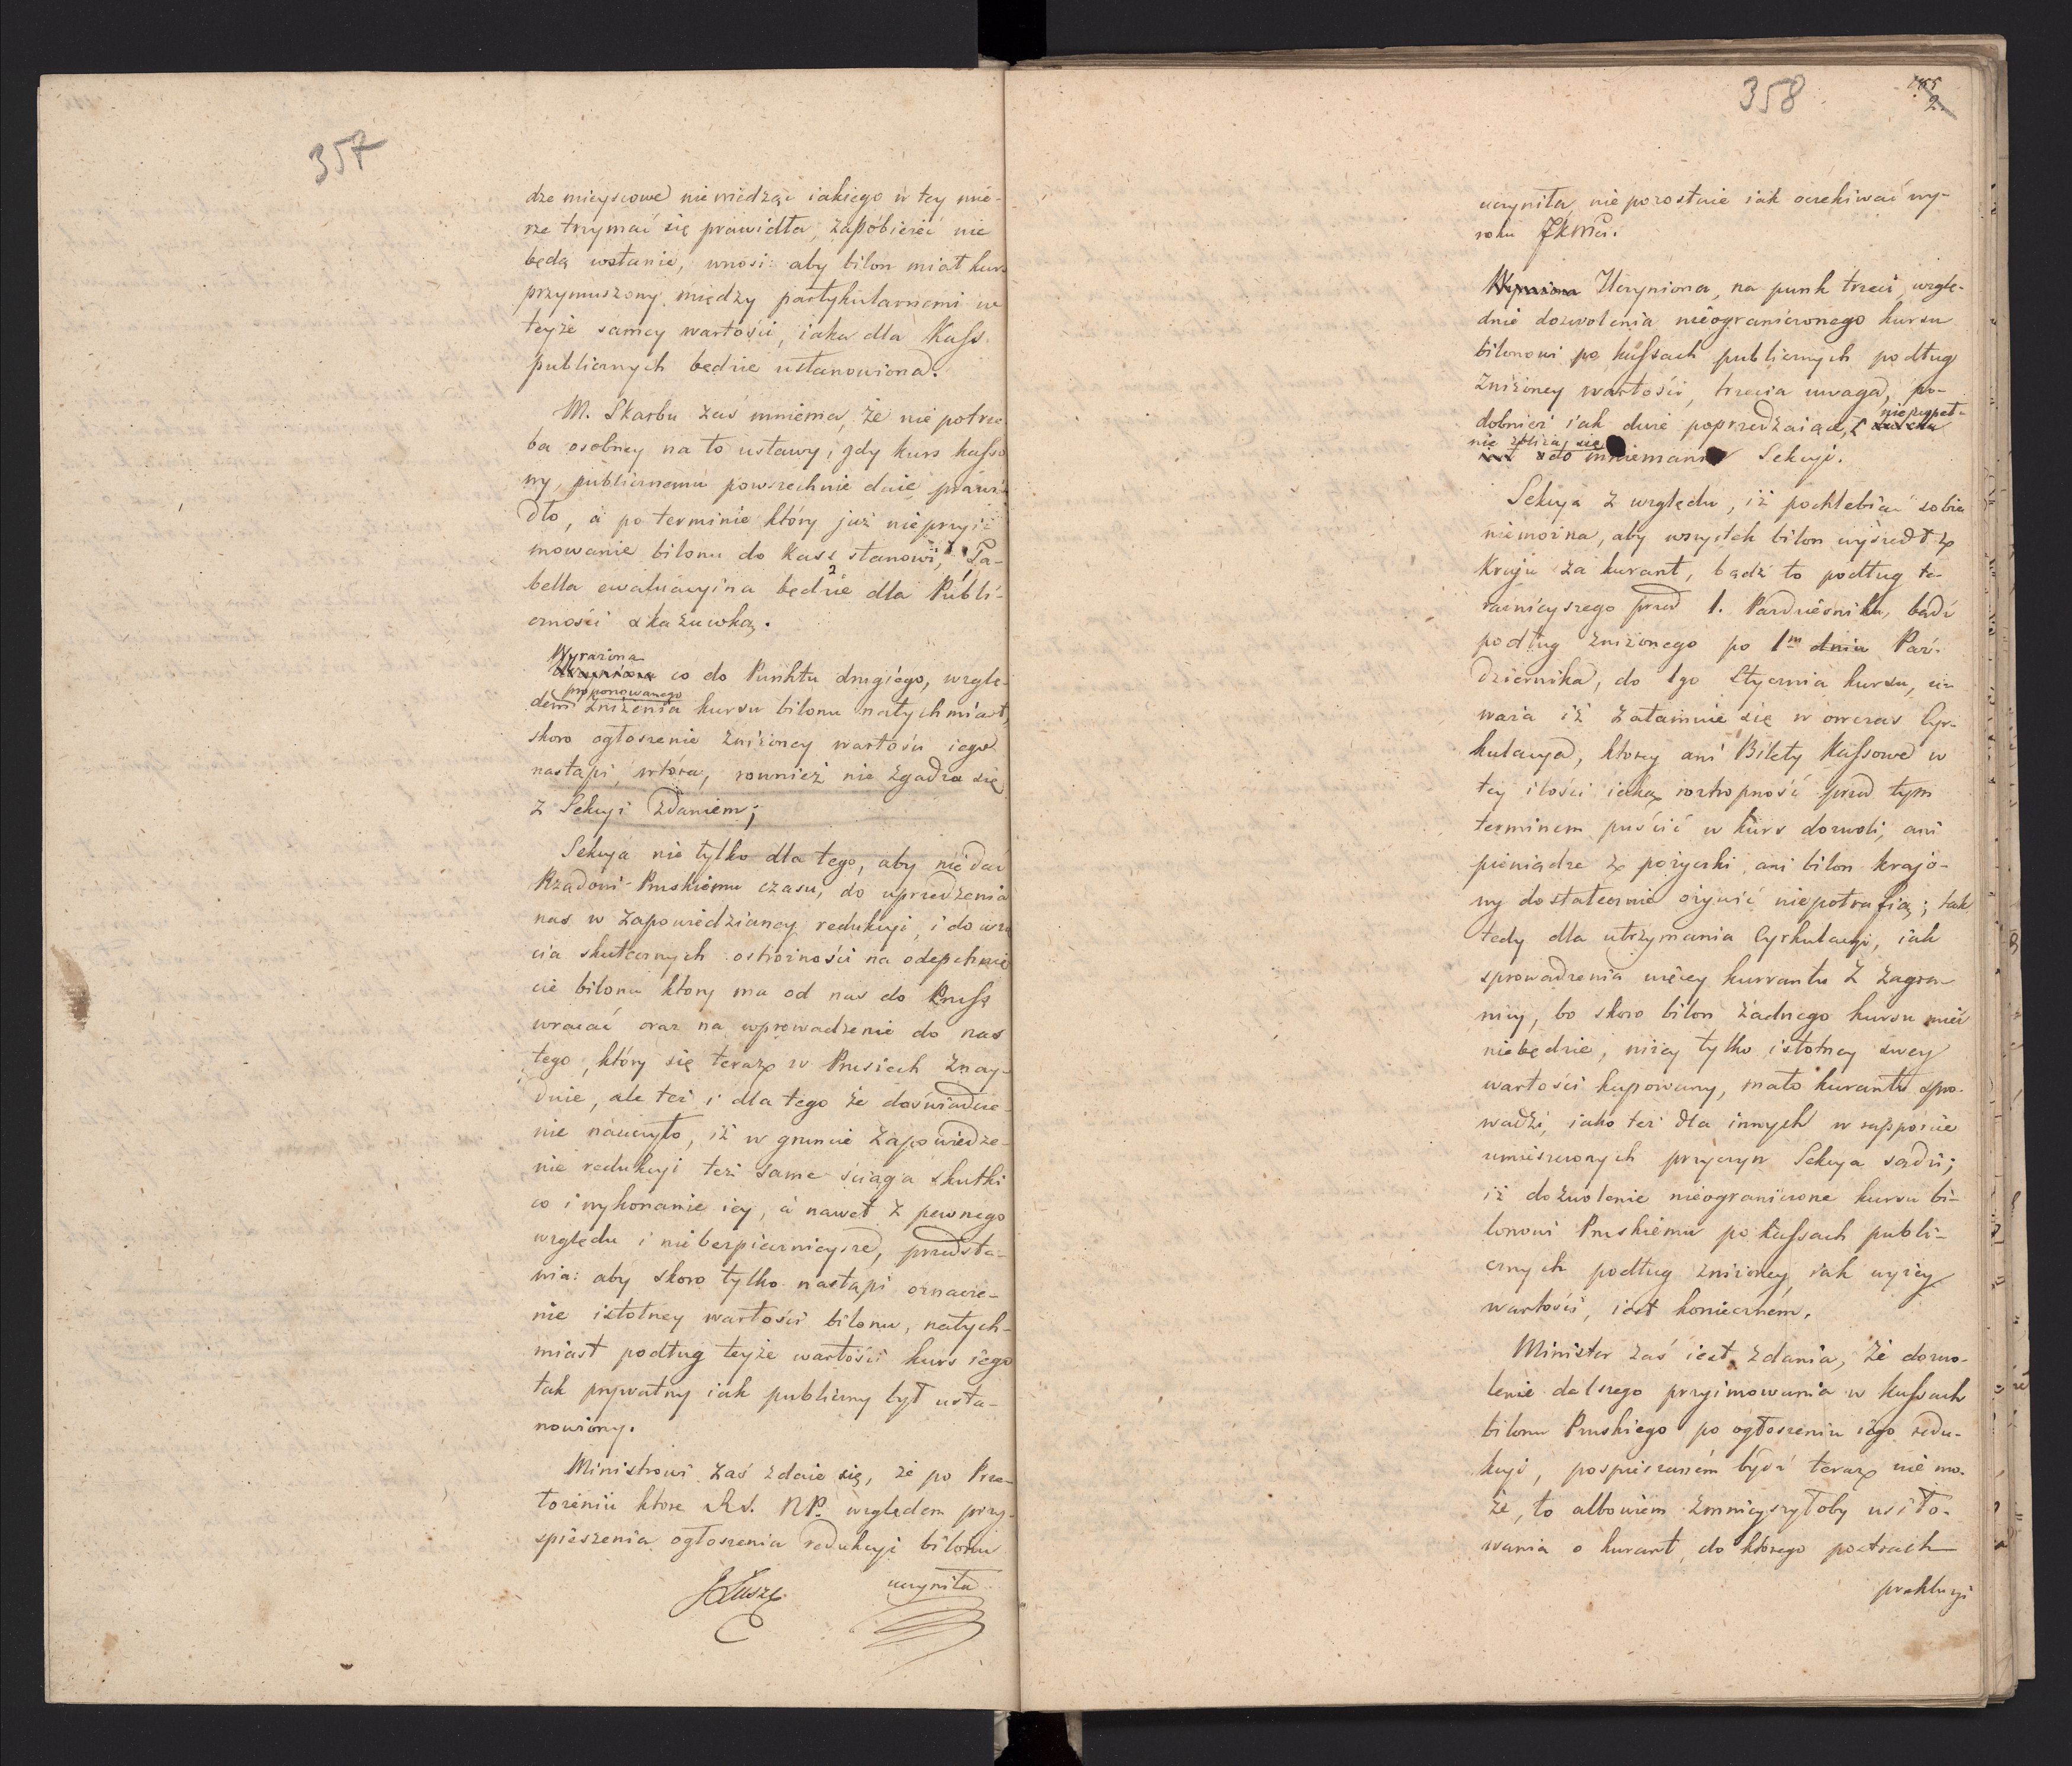 357
dze mieyscowe niewiedząc iakiego w tey mie-
rze trzymać się prawidła, zapobieżeć nie
będą wstanie, wnosi: aby bilon miał kurs
przymuszony między partykularnemi w
teyże samey wartości, iaka dla Kass
publicznych będzie ustanowiona.
M. Skarbu zaś mniema, że nie potrze
ba osobney na to ustawy, gdy kurs kasso
wy, publicznemu powszechnie daie prawi
dło, a po terminie który już nieprzyi-
mowanie bilonu do Kass stanowi, Ta-
bella ewaluacyina będzie dla Publi-
czności skazuwką.
Wyrażona
co do Punktu drugiego, wzglę-
proponowanego
dem zniżenia kursu bilonu natychmiast,
skoro ogłoszenie zniżoney wartości iego
nastąpi, wtóra, rownież nie zgadza się
z Sekcyi zdaniem;
Sekcya nie tylko dla tego, aby nie dać
Rządowi Pruskiemu czasu, do uprzedzenia
nas w zapowiedzianey redukcyi, i do uży
cia skutecznych ostrożności na odepchnię
cie bilonu ktory ma od nas do Pruss
wracać oraz na wprowadzenie do nas
tego, który się teraz w Prusiech znay-
duie, ale też i dla tego że doświadcze-
nie nauczyło, iż w gruncie zapowiedze-
nie redukcyi też same ściąga skutki
co i wykonanie iey, a nawet z pewnego
względu i niebezpiecznieysze, przedsta-
wia: aby skoro tylko nastąpi oznacze-
nie istotney wartości bilonu, natych-
miast podług teyże wartości kurs iego
tak prywatny iak publiczny był usta-
nowiony.
Ministrowi zaś zdaie się, że po Prze-
łożeniu ktore R.S. NP. względem przy-
spieszenia ogłoszenia redukcyi bilonu
uczyniła
358
155
2
uczyniła, nie pozostaie iak oczekiwać wy-
roku JKMci.
Wyraziona Uczyniona, na punk trzeci, wzglę-
dnie dozwolenia nieograniczonego kursu
bilonowi po kassach publicznych podług
zniżoney wartości, trzecia uwaga, po-
dobnież iak dwie poprzedzaiące,
niezupeł-
nie zbliża się
do mniemania Sekcyi.
Sekcya z względu, iż pochlebiać sobie
niemożna, aby wszystek bilon wyszedł z
Kraju za kurant, bądź to podług te-
raźnieyszego przed 1. Pazdziernika, bądź
podług zniżonego po 1m dniu Paź-
dziernika, do 1go Stycznia kursu, u-
waża iż zatamuie się w owczas Cyr-
kulacya, ktorey ani Bilety Kassowe w
tey ilości iaką roztropność przed tym
terminem puścić w kurs dozwoli, ani
pieniądze z pożyczki, ani bilon krajo-
wy dostatecznie ożywić niepotrafią; tak
tedy dla utrzymania Cyrkulacyi, iak
sprowadzenia więcey kurrantu z zagra-
nicy, bo skoro bilon żadnego kursu mieć
niebędzie, niżey tylko istotney swey
wartości kupowany, mało kurantu spro-
wadzi, iako też dla innych w rapporcie
umieszczonych przyczyn Sekcya sądzi;
iż dozwolenie nieograniczone kursu bi-
lonowi Pruskiemu po kassach publi-
cznych podług zniżoney iak wyżey
wartości, iest konieczném.
Minister zaś iest zdania, że dozwo-
lenie dalszego przyimowania w Kassach
bilonu Pruskiego po ogłoszeniu iego redu-
kcyi, pospieszaném bydź teraz nie mo-
że, to albowiem zmnieyszyłoby usiło-
wania o kurant, do którego postrach
prekluzyi